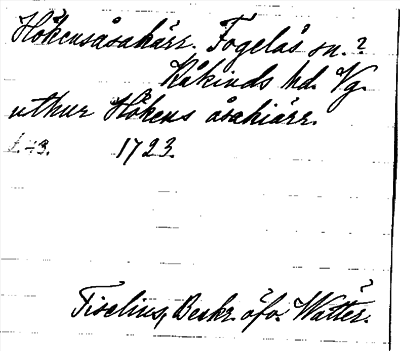 Hökensåsakärr. Fogelås sn.?
Kåkinds hd. Vg.
uthur Hökens åsahiärr.
s. 43. 1723.
Tiselius, Beskr. öfv. Wätter.